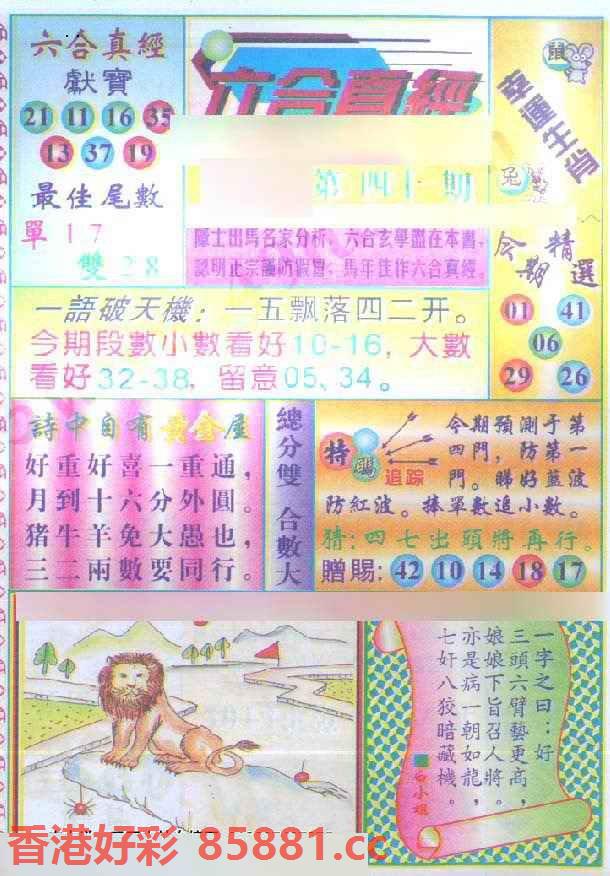 六合真經
獻寶
21 11 16 35
13 37 19
最佳尾數
單 1 7
雙 2 8
六合真經
鼠
幸運生肖
兔
隱士出馬名家分析，六合玄學盡在本書，
認明正宗謹防假冒，馬年佳作六合真經。
今期精選
01 41
06
29 26
一語破天機：一五飘落四二开。
今期段數小數看好10-16，大數
看好32-38，留意05、34。
詩中自有黄金屋
好重好喜一重通，
月到十六分外圓。
猪牛羊兔大愚也，
三二兩數要同行。
總分雙 合數大
特碼
追踪
今期預測于第
四門，防第一
門。睇好藍波
防紅波。捧單數追小數。
猜：四七出頭將再行。
贈賜：42 10 14 18 17
一字之曰：好
三頭六臂藝更高，
娘娘下旨召人將。
亦是病一朝如龍，
七奸八狡暗藏機。
白小姐
香港好彩 85881.cc